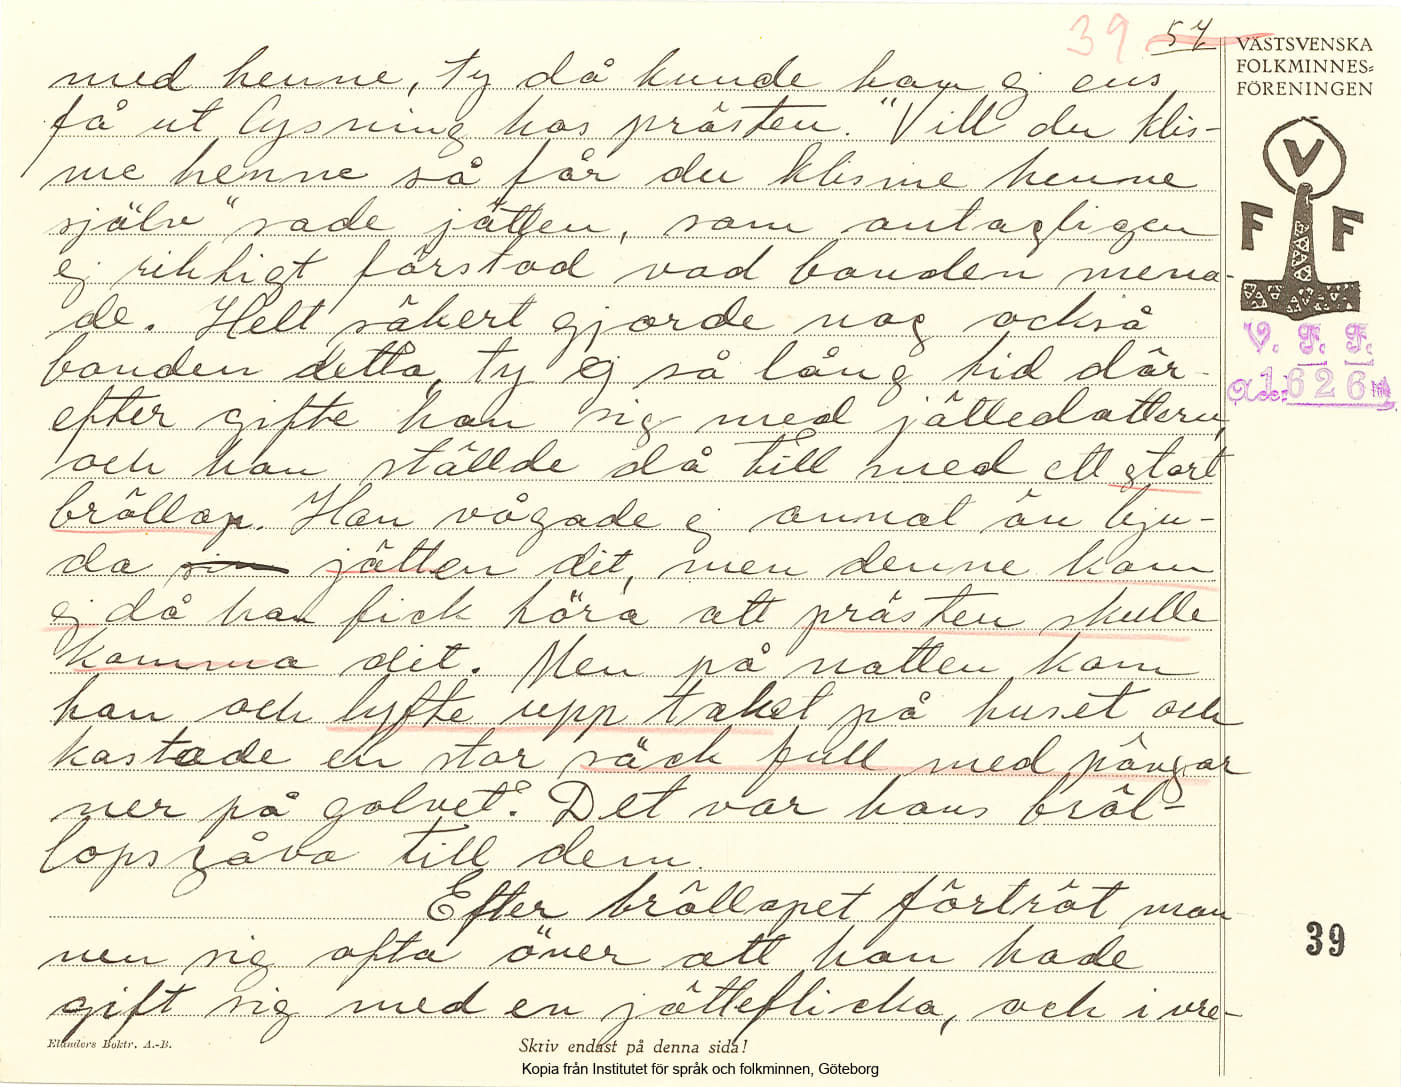 39 57
VÄSTSVENSKA
FOLKMINNES=
FÖRENINGEN
med henne, ty då kunde han ej ens
få ut lysning hos prästen. "Vill du klis-
me henne så får du klisme henne
själv" sade jätten, som antagligen
ej riktigt förstod vad bonden mena-
de. Helt säkert gjorde nog också
bonden detta, ty ej så lång tid där-
efter gifte han sig med jättedottern,
och han ställde då till med ett stort
bröllop. Han vågade ej annat än bju-
da jätten dit, men denne kom
ej då han fick höra att prästen skulle
komma dit. Men på natten kom
han och lyfte upp taket på huset och
kastade en stor säck full med pängar
ner på golvet. Det var hans bröl-
lopsgåva till dem.
Efter bröllopet förtröt man
nen sig ofta över att han hade
gift sig med en jätteflicka, och i vre-
V
F F
V. F. F.
1626
39
Elanders Boktr. A.-B.
Skriv endast på denna sida!
Kopia från Institutet för språk och folkminnen, Göteborg